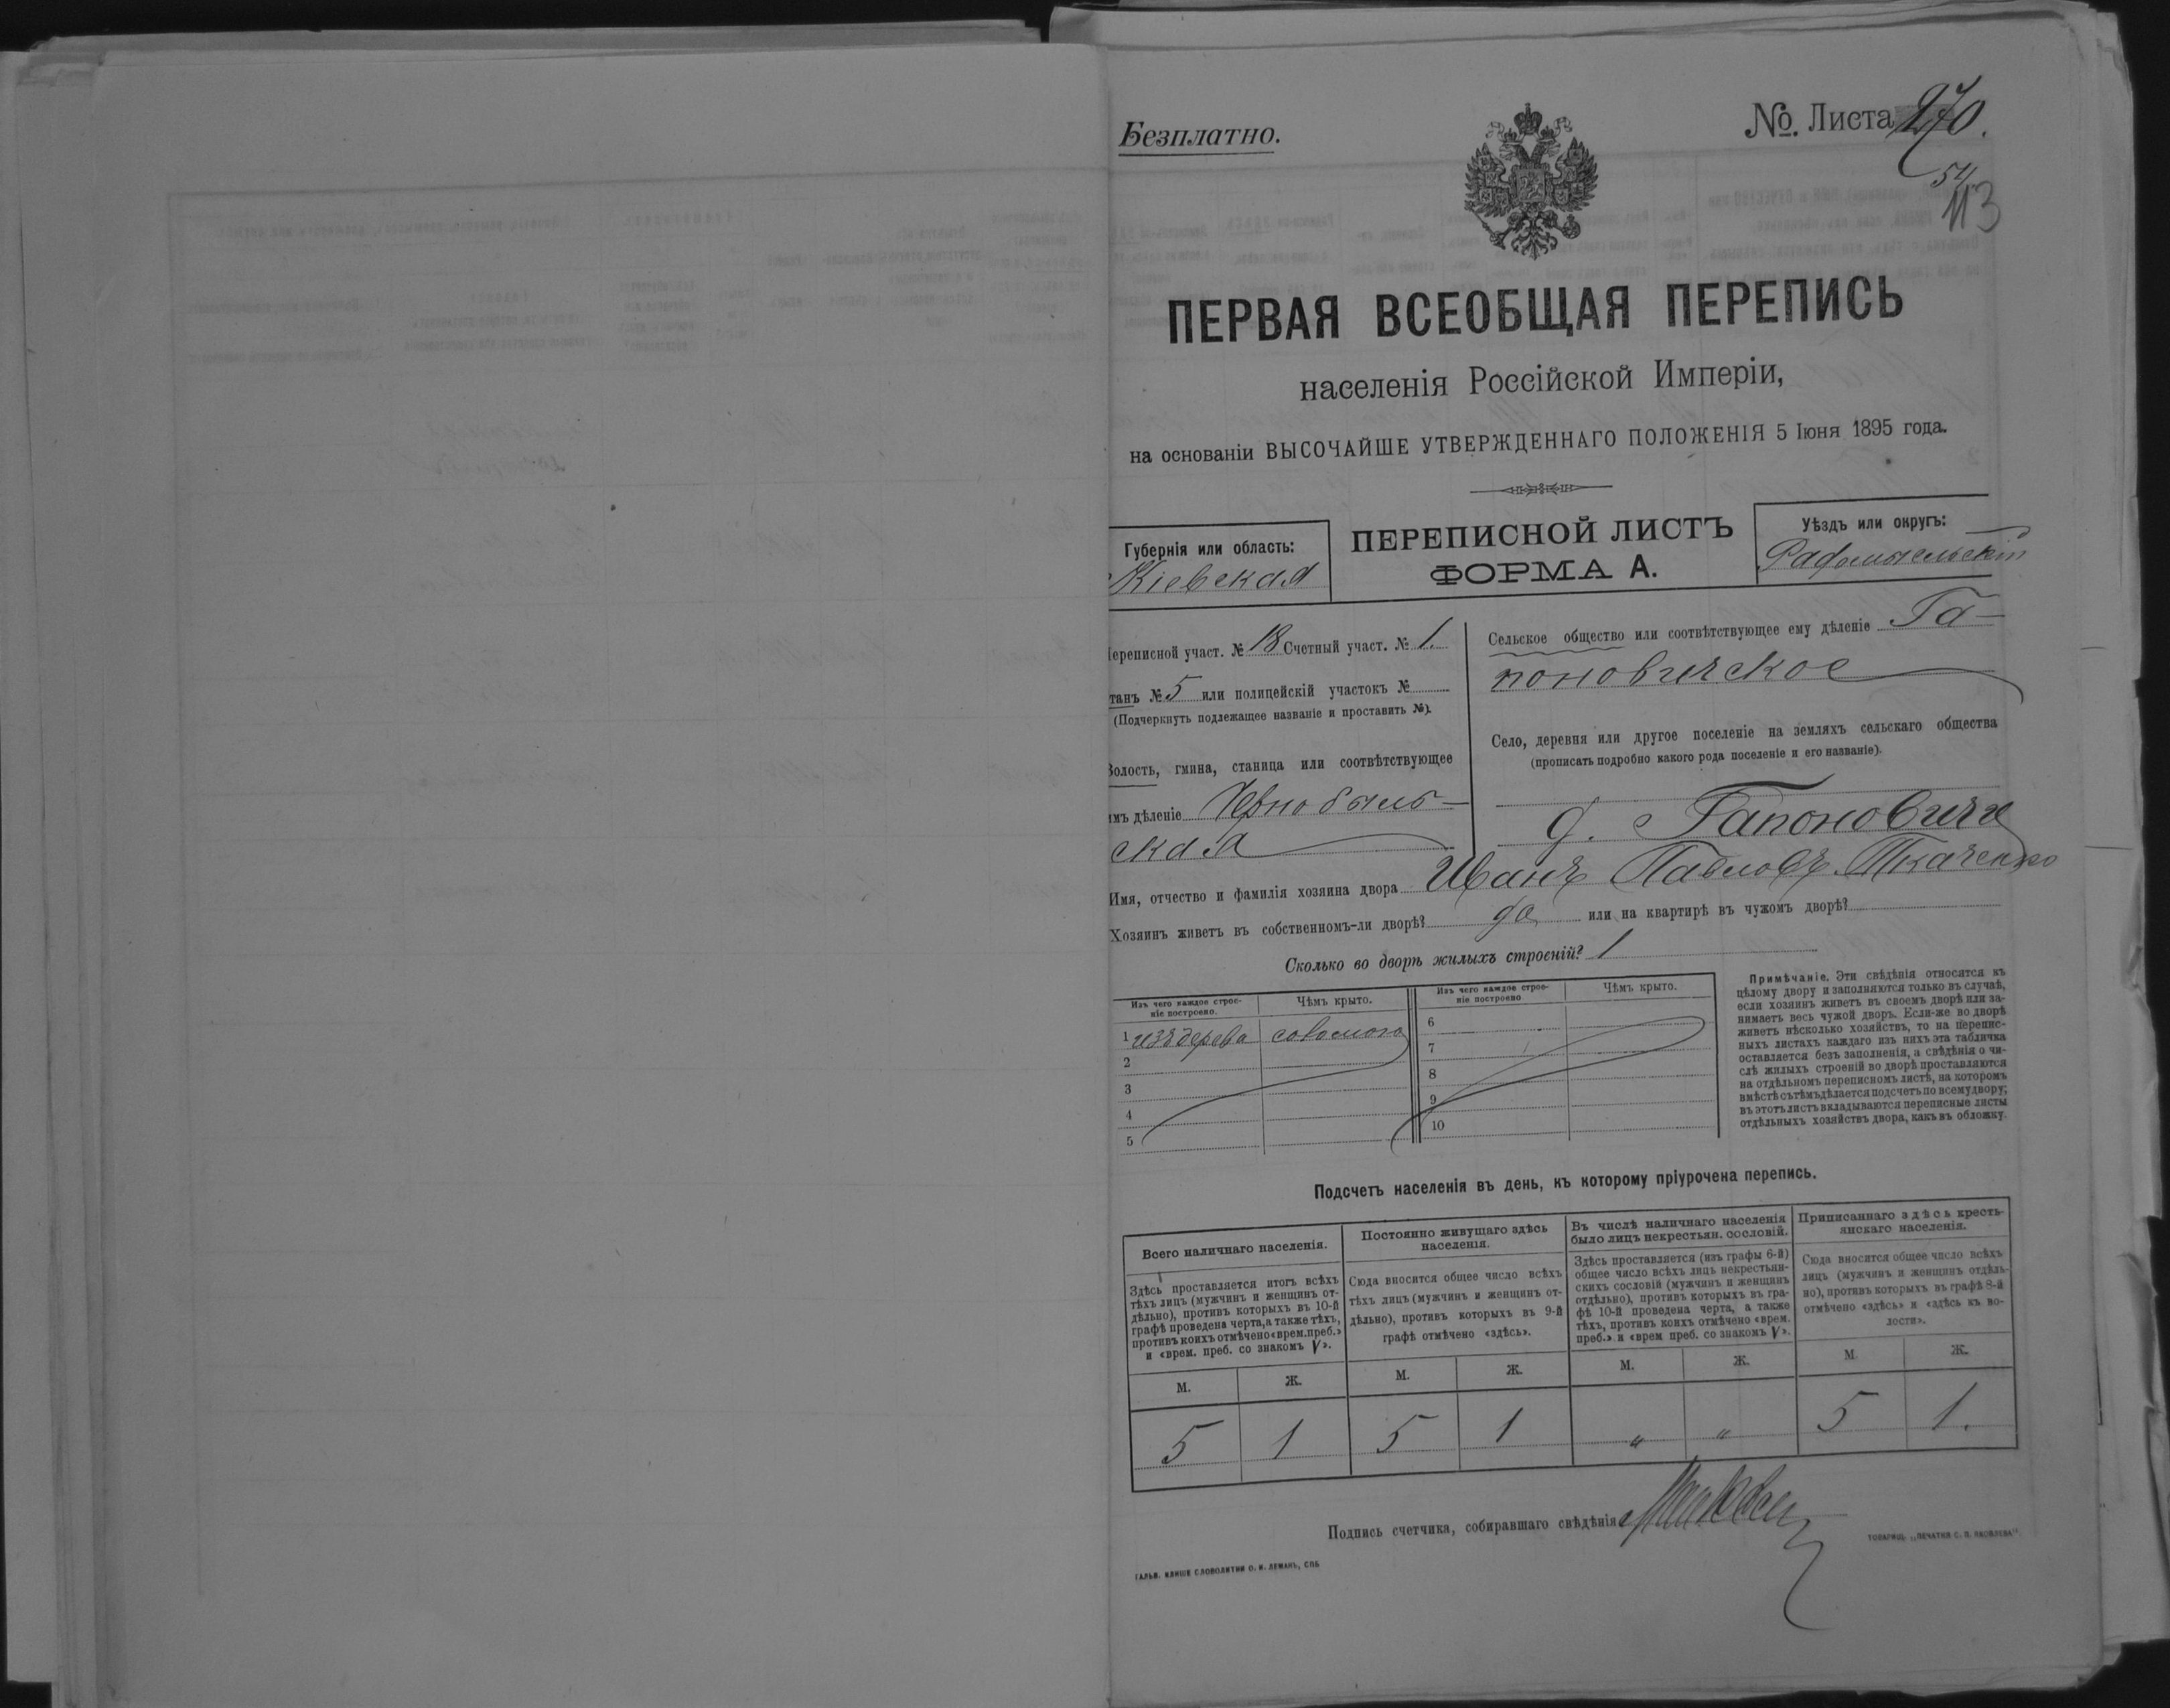 Безплатно.
№. Листа 270.
54
113
ПЕРВАЯ ВСЕОБЩАЯ ПЕРЕПИСЬ
населенія Россійской Имперіи,
на основаніи ВЫСОЧАЙШЕ УТВЕРЖДЕННАГО ПОЛОЖЕНІЯ 5 Іюня 1895 года.
Губернія или область:
Кіевская
ПЕРЕПИСНОЙ ЛИСТЪ
ФОРМА А.
Уѣздъ или округъ:
Радомысльскій
Переписной участ. № 18 Счетный участ. № 1.
танъ № 5 или полицейскій участокъ №
(Подчеркнуть подлежащее названіе и проставить №).
Волость, гмина, станица или соотвѣтствующее
имъ дѣленіе Чернобыль-
ская
Сельское общество или соотвѣтствующее ему дѣленіе Га-
поновичское
Село, деревня или другое поселеніе на земляхъ сельскаго общества
(прописать подробно какого рода поселеніе и его названіе).
д. Гапоновичи
Имя, отчество и фамилія хозяина двора Иванъ Павловъ Ткаченко
Хозяинъ живетъ въ собственномъ-ли дворѣ? да или на квартирѣ въ чужомъ дворѣ?
Сколько во дворѣ жилыхъ строеній? 1
Изъ чего каждое строе-
ніе построено.
Чѣмъ крыто.
Изъ чего каждое строе-
ніе построено
Чѣмъ крыто.
1 изъ дерева соломою
2
3
4
5
6
7
8
9
10
Примѣчаніе. Эти свѣдѣнія относятся къ
цѣлому двору и заполняются только въ случаѣ,
если хозяинъ живетъ въ своемъ дворѣ или за-
нимаетъ весь чужой дворъ. Если-же во дворѣ
живетъ нѣсколько хозяйствъ, то на перепис-
ныхъ листахъ каждаго изъ нихъ эта табличка
оставляется безъ заполненія, а свѣдѣнія о чи-
слѣ жилыхъ строеній во дворѣ проставляются
на отдѣльномъ переписномъ листѣ, на которомъ
вмѣстѣ съ тѣмъ дѣлается подсчетъ по всему двору;
въ этотъ листъ вкладываются переписные листы
отдѣльныхъ хозяйствъ двора, какъ въ обложку.
Подсчетъ населенія въ день, къ которому пріурочена перепись.
Всего наличнаго населенія.
Здѣсь проставляется итогъ всѣхъ
тѣхъ лицъ (мужчинъ и женщинъ от-
дѣльно), противъ которыхъ въ 10-й
графѣ проведена черта, а также тѣхъ,
противъ коихъ отмѣчено «врем. преб.»
и «врем. преб. со знакомъ V».
Постоянно живущаго здѣсь
населенія.
Сюда вносится общее число всѣхъ
тѣхъ лицъ (мужчинъ и женщинъ от-
дѣльно), противъ которыхъ въ 9-й
графѣ отмѣчено «здѣсь».
Въ числѣ наличнаго населенія
было лицъ некрестьян. сословій.
Здѣсь проставляется (изъ графы 6-й)
общее число всѣхъ лицъ некрестьян-
скихъ сословій (мужчинъ и женщинъ
отдѣльно), противъ которыхъ въ гра-
фѣ 10-й проведена черта, а также
тѣхъ, противъ коихъ отмѣчено «врем.
преб.» и «врем преб. со знакомъ V».
Приписаннаго здѣсь кресть-
янскаго населенія.
Сюда вносится общее число всѣхъ
лицъ (мужчинъ и женщинъ отдѣль-
но), противъ которыхъ въ графѣ 8-й
отмѣчено «здѣсь» и «здѣсь къ во-
лости».
М. Ж. М. Ж. М. Ж. М Ж.
5 1 5 1 " " 5 1.
Подпись счетчика, собиравшаго свѣдѣнія
ГАЛЬВ. КЛИШЕ СЛОВОЛИТНИ О. И. ЛЕМАНЪ, СПБ
ТОВАРИЩ. „ПЕЧАТНЯ С. П. ЯКОВЛЕВА"